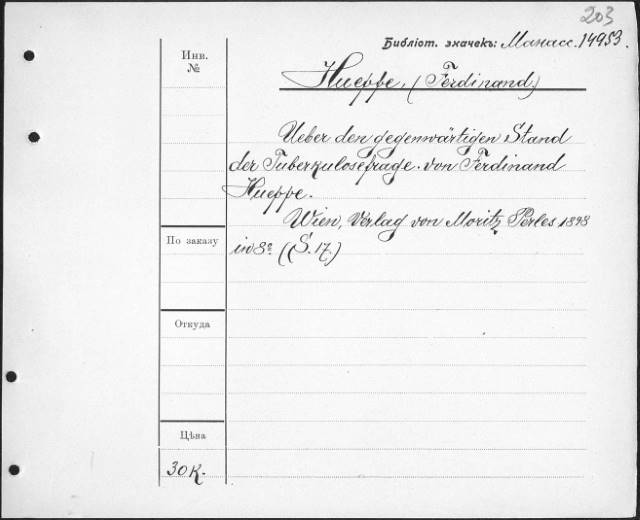 203
Библіот. значекъ: Манасс. 14953.
Инв.
№
Hueppe, (Ferdinand.)
Ueber den gegenwärtigen Stand
der Tuberkulosefrage. von Ferdinand
Hueppe.
Wien, Verlag von Moritz Perles 1898
По заказу
in 8º (S. 17)
Откуда
Цѣна
30 К.